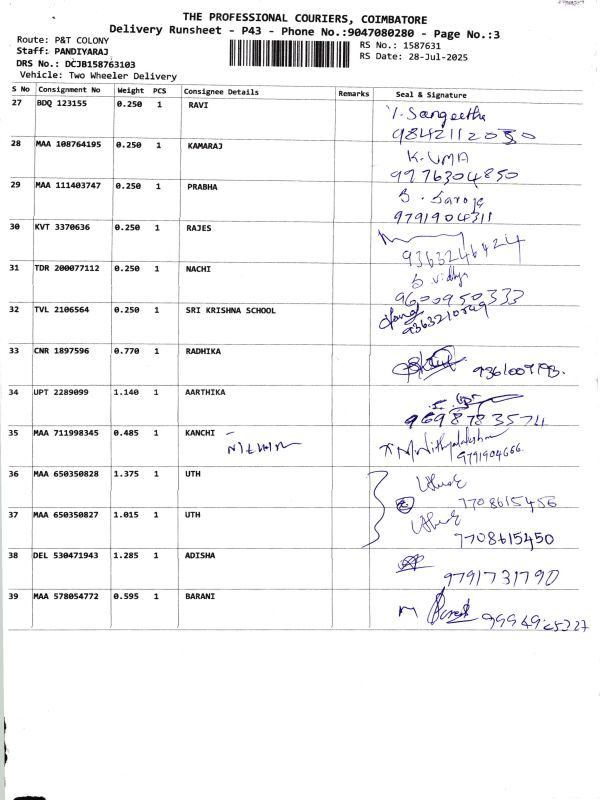 THE PROFESSIONAL COURIERS, COIMBATORE
Delivery Runsheet - P43 - Phone No.:9047080280 - Page No.:3
Route: P&T COLONY
Staff: PANDIYARAJ
DRS No.: DCJB158763103
Vehicle: Two Wheeler Delivery
RS No.: 1587631
RS Date: 28-Jul-2025
S No Consignment No Weight PCS Consignee Details Remarks Seal & Signature
27 BDQ 123155 0.250 1 RAVI
Y. Sangeetha
28 MAA 108764195 0.250 1 KAMARAJ
K. UMA
9976304850
29 MAA 111403747 0.250 1 PRABHA
S. Saroja
9791904311
30 KVT 3370636 0.250 1 RAJES
9363246424
31 TDR 200077112 0.250 1 NACHI
S Vidhya
9600950333
32 TVL 2106564 0.250 1 SRI KRISHNA SCHOOL
33 CNR 1897596 0.770 1 RADHIKA
34 UPT 2289099 1.140 1 AARTHIKA
9698783574
35 MAA 711998345 0.485 1 KANCHI -
Nithyalakshmi
9791904666
36 MAA 650350828 1.375 1 UTH
7708615456
37 MAA 650350827 1.015 1 UTH
7708615450
38 DEL 530471943 1.285 1 ADISHA
9791731790
39 MAA 578054772 0.595 1 BARANI